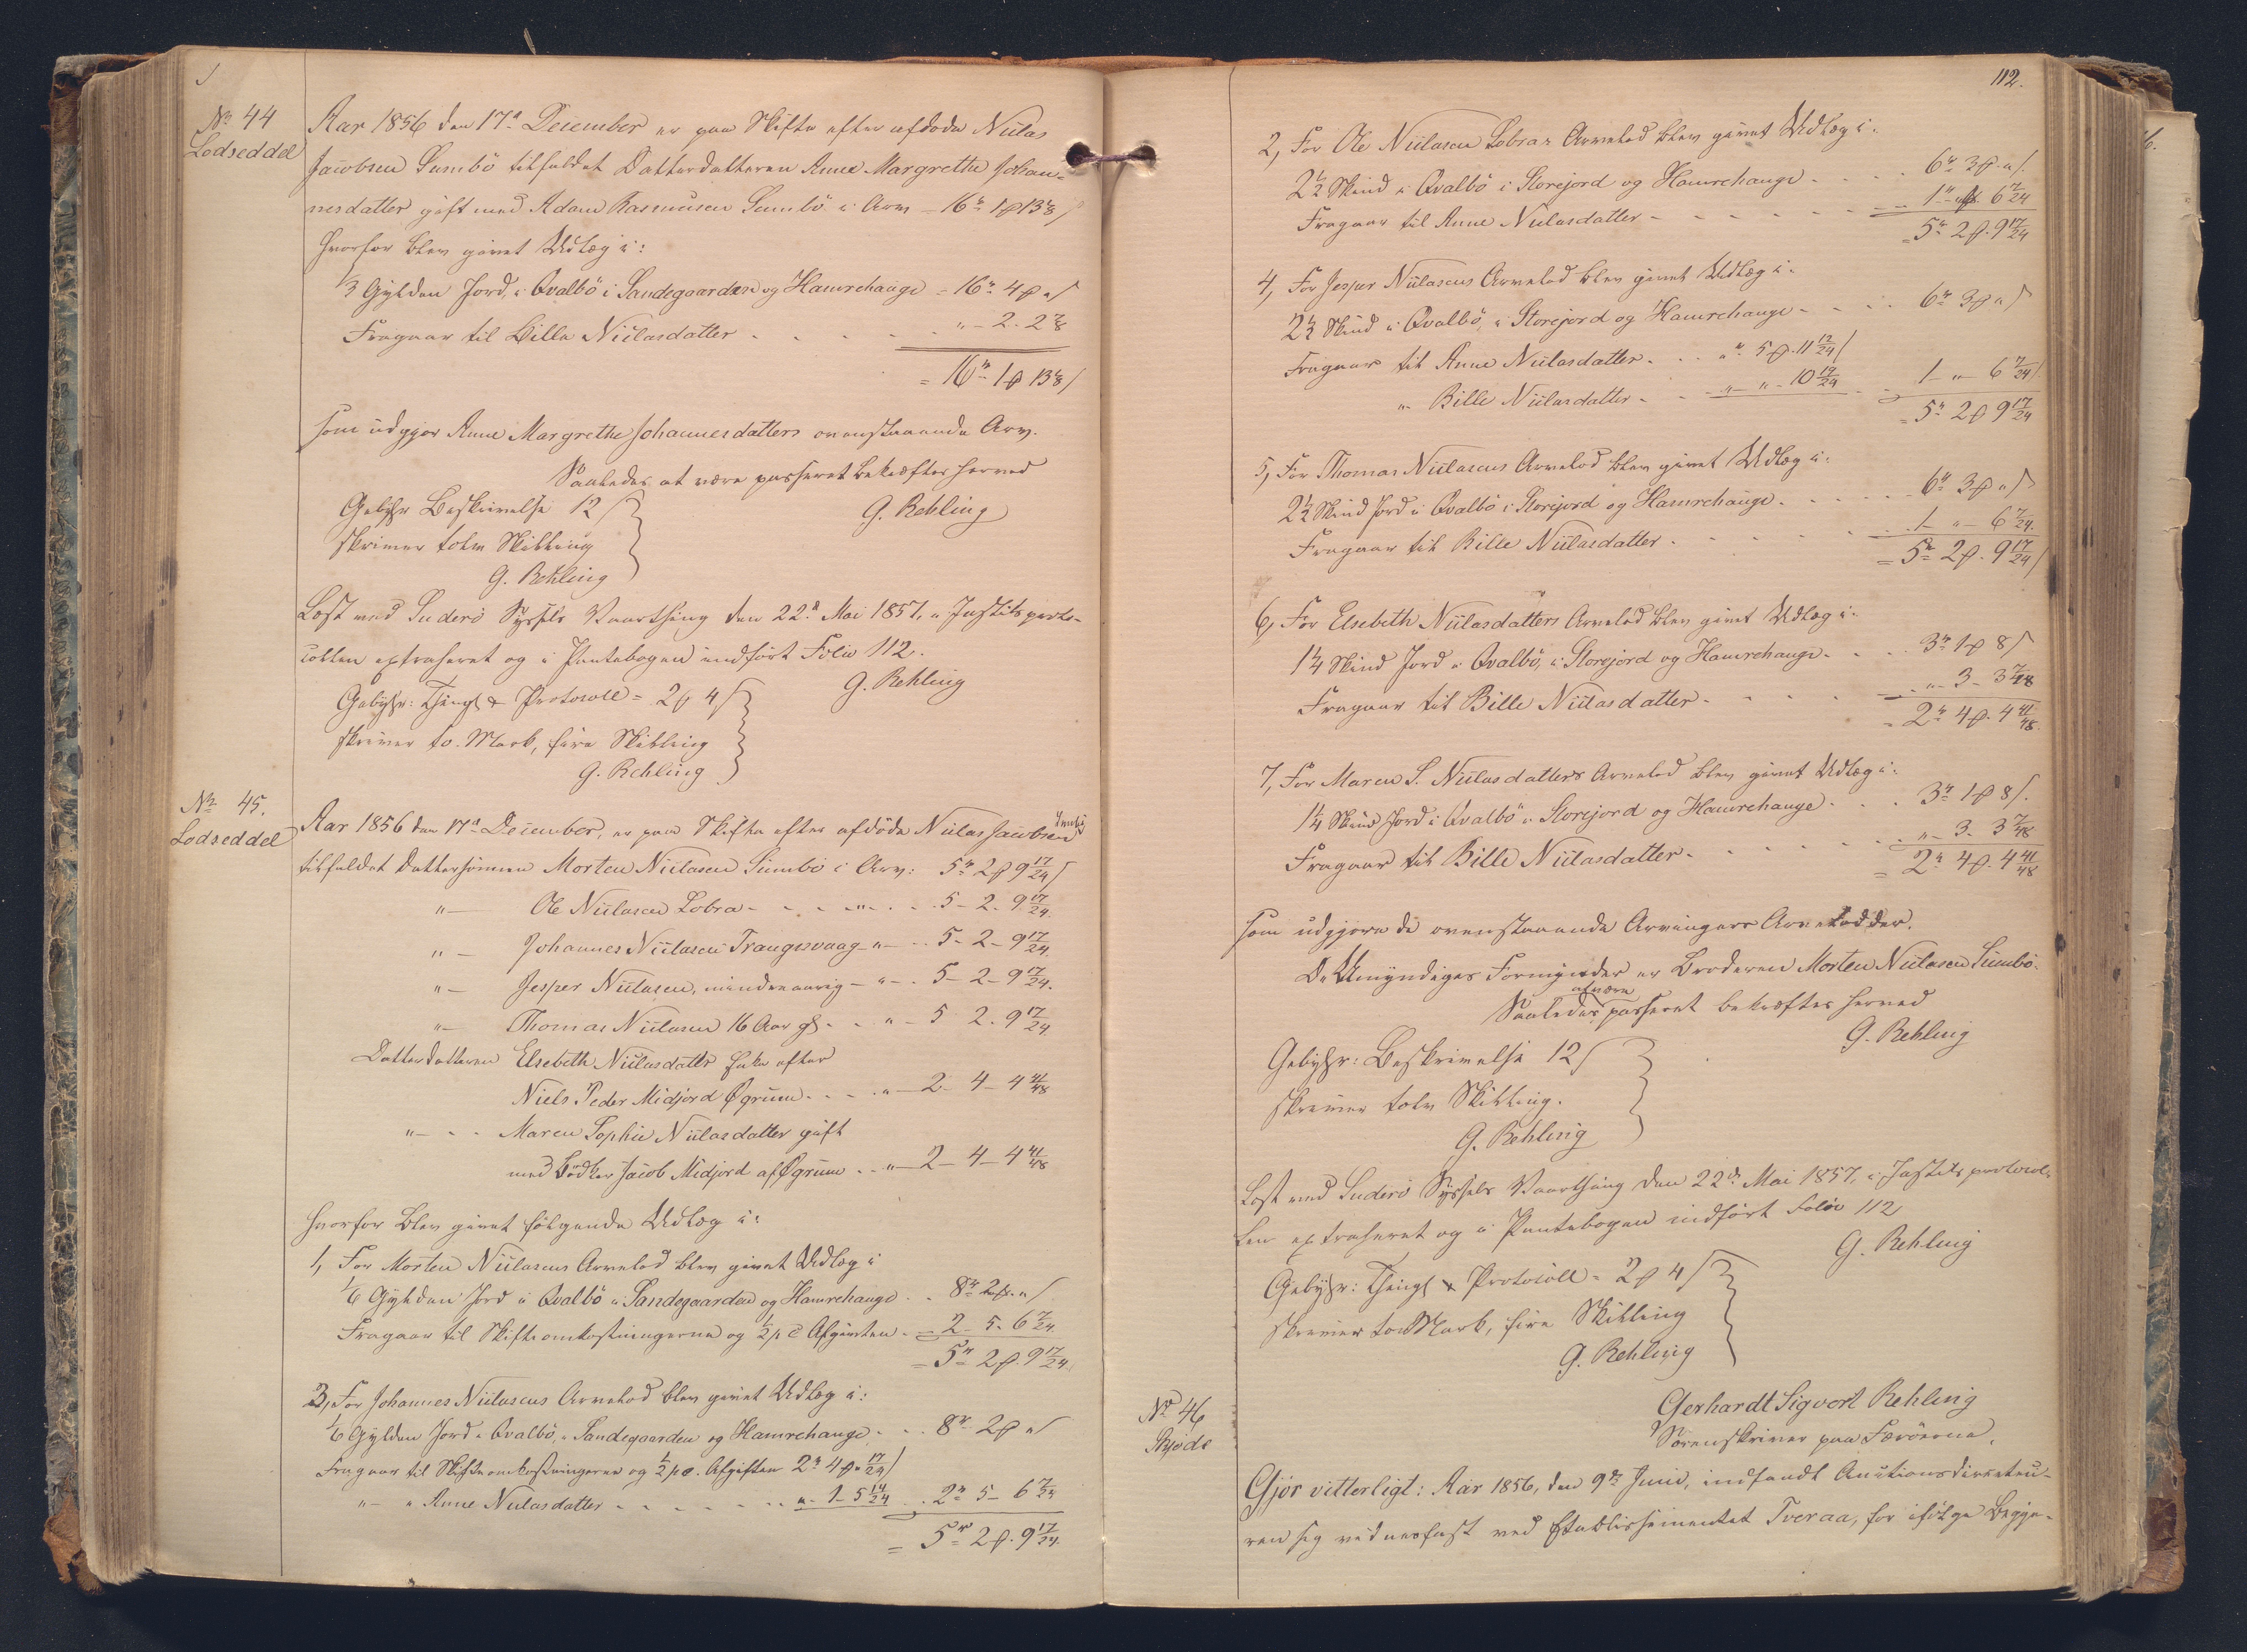 No 44
Lodseddel
Aar 1856 den 17de December er paa Skifte efter afdøde Niilas
Jacobsen Sumbö tilfaldet Datterdatteren Anne Margrethe Johan-
nesdatter gift med Adam Rasmusen Sumbö i Arv = 16 rd 1 ₰ 13⅛ ſ
hvorfor blev givet Udlæg i:
⅓ Gylden Jord i Qvalbö i Sandegaarden og Hamrehauge = 16 rd 4 ₰ " ſ
Fragaar til Billa Niilasdatter . . . . " - 2 - 2⅞
= 16 rd 1 ₰ 13⅛ ſ
som udgjør Anne Margrethe Johannesdatters ovenstaaende Arv.
Saaledes at være passeret bekræftes herved
G. Rehling
Gebyhr Beskrivelse 12 ſ
skriver tolv Skilling
G. Rehling
Læst ved Suderö Syssels Vaarthing den 22de Mai 1857, i Justitsproto-
collen extraheret og i Pantebogen indført Folio 112.
G. Rehling
Gebyhr: Thingl & Protocoll = 2 ₰ 4 ſ
skriver to Mark, fire Skilling
G. Rehling
No 45.
Lodseddel
Aar 1856 den 17de December, er paa Skifte efter afdöde Niilas Jacobsen Sumbö
tilfaldet Dattersönnen Morten Niilasen Sumbö i Arv: 5 rd 2 ₰ 9 17/24 ſ
" — Ole Niilasen Lobra - - - " - . . 5 - 2 - 9 17/24
" — Johannes Niilasen Trangisvaag - " - . . 5 - 2 - 9 17/24
" — Jesper Niilasen, mindreaarig - " - . 5 - 2 - 9 17/24
" — Thomas Niilasen 16 Aar gl. - . " - 5 - 2 - 9 17/24
Datterdatteren Elsebeth Niilasdatter Enke efter
Niels Peder Midjord Øgrum . . . " - 2 - 4 - 4 41/48
" - . . Maren Sophie Niilasdatter gift
med Bödker Jacob Midjord af Øgrum . . " - 2 - 4 - 4 41/48
hvorfor blev givet følgende Udlæg i:
1, For Morten Niilasens Arvelod blev givet Udlæg i
1/6 Gylden Jord i Qvalbö i Sandegaarden og Hamrehauge . . 8 rd 2 ₰ " ſ
Fragaar til Skifteomkostningerne og ½ pC Afgiften . = 2 - 5 - 6 7/24
= 5 rd 2 ₰ 9 17/24
3, For Johannes Niilasens Arvelod blev givet Udlæg i:
1/6 Gylden Jord i Qvalbö, i Sandegaarden og Hamrehauge . . . 8 rd 2 ₰ " ſ
Fragaar til Skifteomkostningerne og ½ pC. Afgiften 2 rd 4 ₰ " 17/24 ſ
" — " Anne Niilasdatter - - - - - . . " - 1 - 5 14/24 . . 2 rd 5 - 6 7/24
= 5 rd 2 ₰ 9 17/24
112.
2, For Ole Niilasen Lobras Arvelod blev givet Udlæg i:
2½ Skind i Qvalbö i Storejord og Hamrehauge . . . . 6 rd 3 ₰ " ſ
Fragaar til Anne Niilasdatter - - - - - - - 1 - " - 6 7/24
= 5 rd 2 ₰ 9 17/24
4, For Jesper Niilasens Arvelod blev givet Udlæg i:
2½ Skind i Qvalbö, i Storejord og Hamrehauge - - . . 6 rd 3 ₰ " ſ
Fragaar til Anne Niilasdatter . . . " rd 5 ₰ 11 12/24 ſ
" - Bille Niilasdatter . . - " - " - 10 19/24 . = 1 - " - 6 7/24
= 5 rd 2 ₰ 9 17/24
5, For Thomas Niilasens Arvelod blev givet Udlæg i:
2½ Skind Jord i Qvalbö i Storejord og Hamrehauge . . . . . 6 rd 3 ₰ " ſ
Fragaar til Bille Niilasdatter . . . . . . . 1 - " - 6 7/24
= 5 rd 2 ₰ 9 17/24 ſ
6, For Elsebeth Niilasdatters Arvelod blev givet Udlæg i:
1¼ Skind Jord i Qvalbö, i Storejord og Hamrehauge . . . 3 rd 1 ₰ 8 ſ
Fragaar til Bille Niilasdatter . . . . . " - 3 - 3 7/48
= 2 rd 4 ₰ 4 41/48
7, For Maren S. Niilasdatters Arvelod blev givet Udlæg i:
1¼ Skind Jord i Qvalbö i Storejord og Hamrehauge . . . 3 rd 1 ₰ 8 ſ
Fragaar til Bille Niilasdatter . . . . . . " - 3 - 3 7/48
= 2 rd 4 ₰ 4 41/48
som udgjøre de ovenstaaende Arvingers Arvelodder.
De Umyndiges Formynder er Broderen Morten Niilasen Sumbö.
Saaledes at være passeret bekræftes herved
G. Rehling
Gebyhr: Beskrivelse 12 ſ
skriver tolv Skilling.
G. Rehling
Læst ved Suderö Syssels Vaarthing den 22de Mai 1857, i Justitsprotocol-
len extraheret og i Pantebogen indført Folio 112
G. Rehling
Gebyhr: Thingl & Protocoll = 2 ₰ 4 ſ
skriver to Mark, fire Skilling
G. Rehling
No 46
Skjøde
Gerhardt Sigvort Rehling
Sorenskriver paa Færöerne,
Gjör vitterligt: Aar 1856, den 9de Juni, indfandt Auctionsdirecteu-
ren sig vidnesfast ved Etablissementet Tveraa, for ifölge Begjæ-